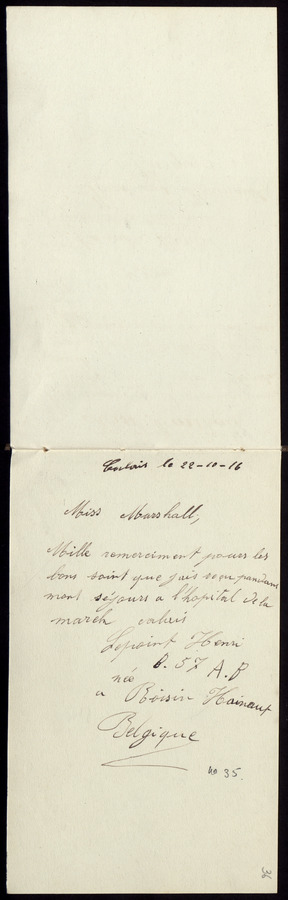 le 22-10-16
Miss Marshall,
Mille remerciment pour les
bons soint que jais recu pandans
mont séjours a l'hopital de la
march calais
Lepoint Henri
B. 57 A.B
née
a Roisin Hainaux
Belgique
no 35.
36